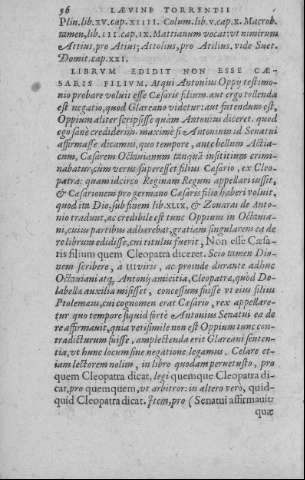 56 LÆVINE TORRENTII
Plin. lib. XV. cap. XIIII. Colum. lib. V. cap. X. Macrob.
tamen, lib. III. cap. IX. Mattianum vocat: vt nimirum
Attius, pro Atius; Attolius, pro Atilius. vide Suet.
Domit. cap. XXI.
LIBRVM EDIDIT NON ESSE CÆ-
SARIS FILIVM. Atqui Antonius Oppij testimo-
nio probare voluit esse Cæsaris filium. aut ergo tollenda
est negatio, quod Glareano videtur: aut fatendum est,
Oppium aliter scripsisse quàm Antonius diceret. quod
ego sanè crediderim. maximè si Antonium id Senatui
affirmasse dicamus, quo tempore, ante bellum Actia-
cum, Cæsarem Octauianum tanquã institium crimi-
nabatur, cùm verus superesset filius Cæsario, ex Cleo-
patra: quam idcirco Reginam Regum appellari iussit,
& Cæsarionem pro germano Cæsaris filio haberi voluit,
quod ita Dio, sub finem lib. XLIX, & Zonaras de Anto-
nio tradunt, ac credibile est tunc Oppium in Octauia-
ni, cuius partibus adhærebat, gratiam singularem ea de
re librum edidisse, cui titulus fuerit, Non esse Cæsa-
ris filium quem Cleopatra diceret. Scio tamen Dio-
nem scribere, a IIIviris, ac proinde durante adhuc
Octauiani atq; Antonij amicitia, Cleopatra, quod Do-
labellæ auxilia misisset, concessum fuisse vt eius filius
Ptolemæus, cui cognomen erat Cæsario, rex appellare-
tur quo tempore si quid fortè Antonius Senatui ea de
re affirmauit, quia verisimile non est Oppium tunc con-
tradicturum fuisse, amplectenda erit Glareani senten-
tia, vt hunc locum sine negatione legamus. Celare et-
iam lectorem nolim, in libro quodam peruetusto, pro
quem Cleopatra dicat, legi quemque Cleopatra di-
cat, pro quemquem, vt arbitror: in altero verò, quid-
quid Cleopatra dicat. Item, pro (Senatui affirmauit
quæ